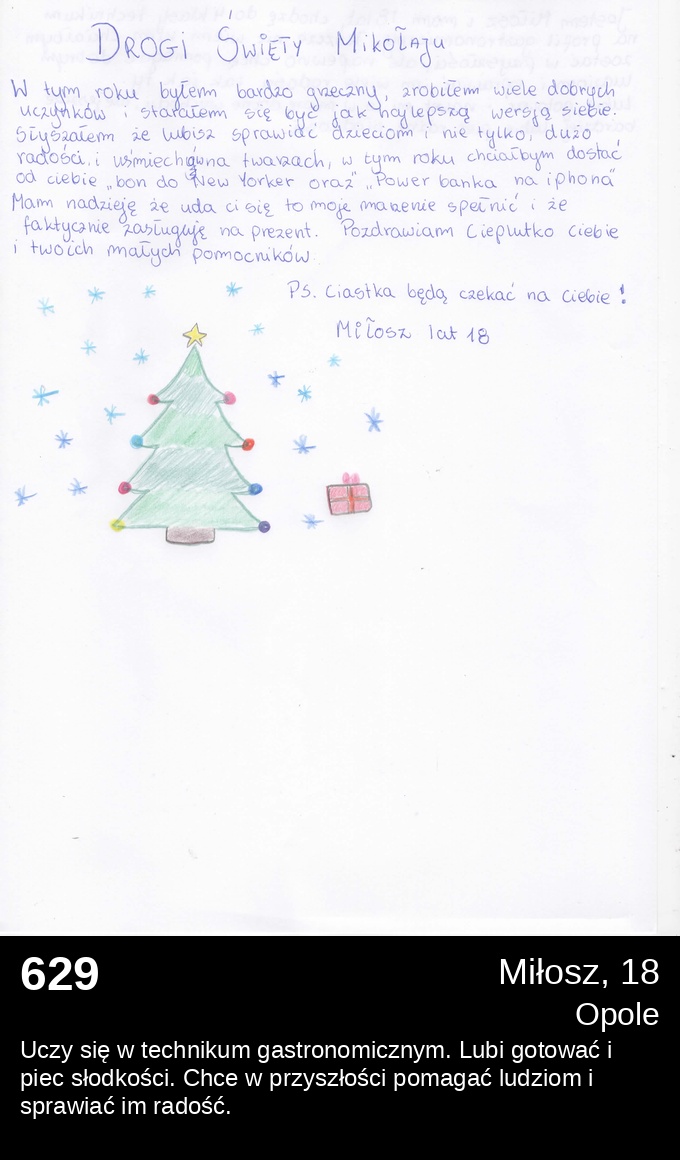 Drogi Święty Mikołaju
W tym roku byłem bardzo grzeczny, zrobiłem wiele dobrych
uczynków i starałem się być jak najlepszą wersją siebie.
Słyszałem że lubisz sprawiać dzieciom i nie tylko, dużo
radości i uśmiechów na twarzach, w tym roku chciałbym dostać
od ciebie „bon do New Yorker oraz" „Power banka na iphona"
Mam nadzieję że uda ci się to moje marzenie spełnić i że
faktycznie zasługuję na prezent. Pozdrawiam Cieplutko Ciebie
i twoich małych pomocników
Ps. Ciastka będą czekać na Ciebie!
Miłosz lat 18
629
Miłosz, 18
Opole
Uczy się w technikum gastronomicznym. Lubi gotować i
piec słodkości. Chce w przyszłości pomagać ludziom i
sprawiać im radość.